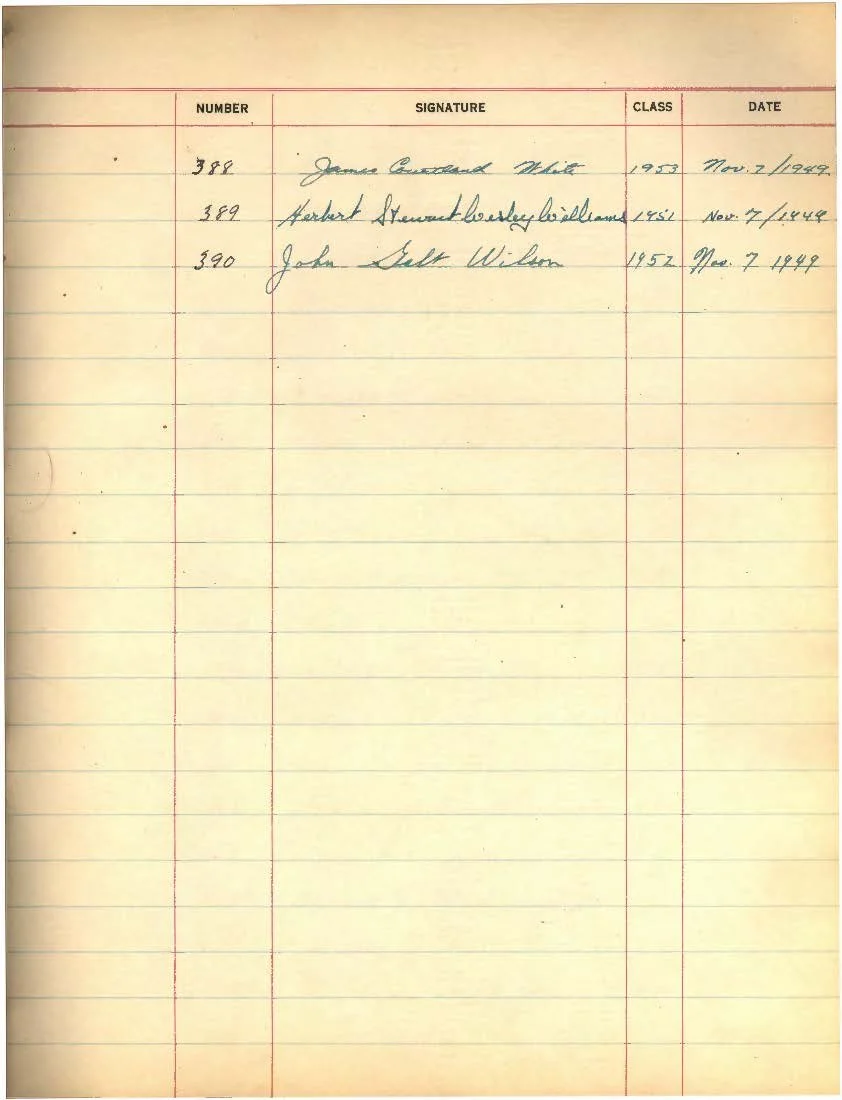 NUMBER SIGNATURE CLASS DATE
388 James Courtland White 1953 Nov. 7/1949.
389 Herbert Stewart Wesley Williams 1951 Nov. 7/1949
390 John Galt Wilson 1952 Nov. 7 1949